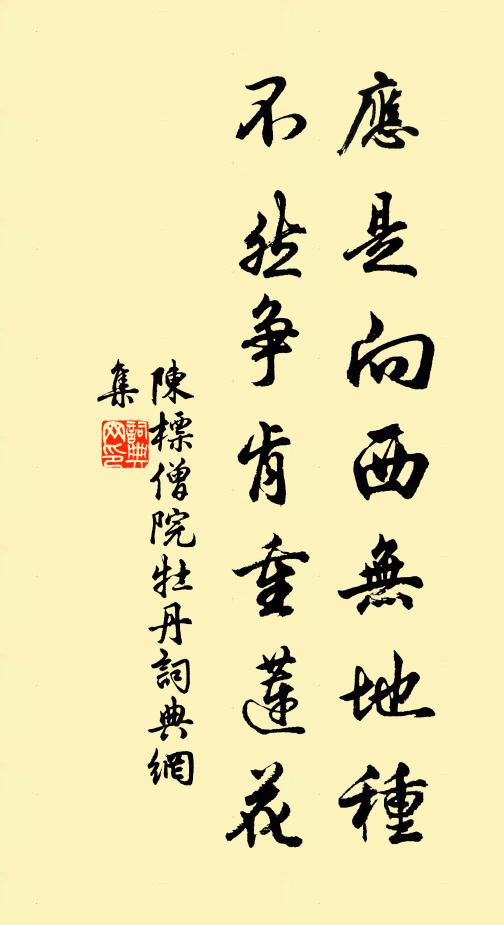 應是向西無地種
不然争肯重蓮花
陳標僧院牡丹詞典網
集
詞典
网印